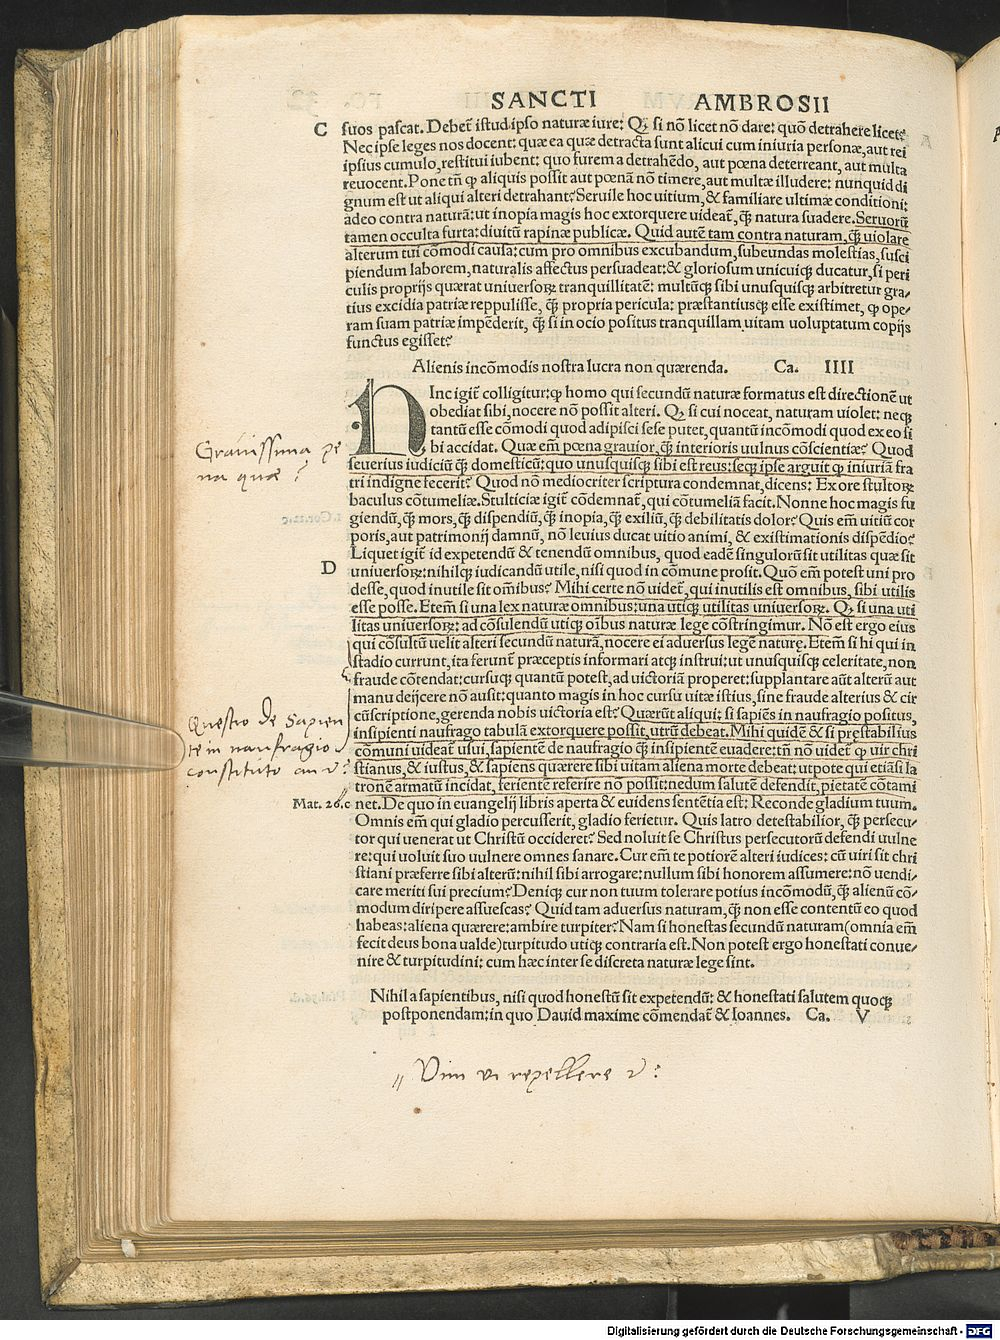 SANCTI AMBROSII
C suos pascat. Debet̄ istud ipso naturæ iure: Qđ si nō licet nō dare: quō detrahere licet?
Nec ipse leges nos docent: quæ ea quæ detracta sunt alicui cum iniuria personæ, aut rei
ipsius cumulo, restitui iubent: quo furem a detrahēdo, aut pœna deterreant, aut multa
reuocent. Pone tn̄ ꝙ aliquis possit aut pœnā nō timere, aut multæ illudere: nunquid di
gnum est ut aliqui alteri detrahant? Seruile hoc uitium, & familiare ultimæ conditioni:
adeo contra naturā: ut inopia magis hoc extorquere uideat̄, ꝙ̄ natura suadere. Seruorū
tamen occulta furta: diuitū rapinæ publicæ. Quid autē tam contra naturam, ꝙ̄ uiolare
alterum tui cōmodi causa: cum pro omnibus excubandum, subeundas molestias, susci
piendum laborem, naturalis affectus persuadeat: & gloriosum unicuiqꝫ ducatur, si peri
culis proprijs quærat uniuersoꝝ tranquillitatē: multūqꝫ sibi unusquisqꝫ arbitretur gra-
tius excidia patriæ reppulisse, ꝙ̄ propria pericula: præstantiusqꝫ esse existimet, ꝙ ope-
ram suam patriæ impēderit, ꝙ̄ si in ocio positus tranquillam uitam uoluptatum copijs
functus egisset?
Alienis incōmodis nostra lucra non quærenda. Ca. IIII
HInc igit̄ colligitur: ꝙ homo qui secundū naturæ formatus est directionē ut
obediat sibi, nocere nō possit alteri. Qđ si cui noceat, naturam uiolet: neqꝫ
tantū esse cōmodi quod adipisci sese putet, quantū incōmodi quod ex eo si
bi accidat. Quæ em̄ pœna grauior, ꝙ̄ interioris uulnus cōscientiæ? Quod
Grauissima pe
na quæ?
seuerius iudiciū ꝙ̄ domesticū: quo unusquisqꝫ sibi est reus: seqꝫ ipse arguit ꝙ iniuriā fra
tri indigne fecerit? Quod nō mediocriter scriptura condemnat, dicens: Ex ore stultoꝝ
baculus cōtumeliæ. Stulticiæ igit̄ cōdemnat̄, qui cōtumeliā facit. Nonne hoc magis fu
giendū, ꝙ̄ mors, ꝙ̄ dispendiū, ꝙ̄ inopia, ꝙ̄ exiliū, ꝙ̄ debilitatis dolor? Quis em̄ uitiū cor
poris, aut patrimonij damnū, nō leuius ducat uitio animi, & existimationis dispēdio?
Liquet igit̄ id expetendū & tenendū omnibus, quod eadē singulorū sit utilitas quæ sit
D uniuersoꝝ: nihilqꝫ iudicandū utile, nisi quod in cōmune prosit. Quō em̄ potest uni pro
desse, quod inutile sit om̄ibus? Mihi certe nō uidet̄, qui inutilis est omnibus, sibi utilis
esse posse. Etem̄ si una lex naturæ omnibus: una utiqꝫ utilitas uniuersoꝝ. Qđ si una uti
litas uniuersoꝝ: ad cōsulendū utiqꝫ oībus naturæ lege cōstringimur. Nō est ergo eius
qui cōsultū uelit alteri secundū naturā, nocere ei aduersus legē naturę. Etem̄ si hi qui in
stadio currunt, ita ferunt̄ præceptis informari atqꝫ instrui: ut unusquisqꝫ celeritate, non
fraude cōtendat: cursuqꝫ quantū potest, ad uictoriā properet: supplantare aūt alterū aut
manu deijcere nō ausit: quanto magis in hoc cursu uitæ istius, sine fraude alterius & cir
cūscriptione, gerenda nobis uictoria est? Quærūt aliqui: si sapiēs in naufragio positus,
Questio de Sapien
te in naufragio
constituto an ?
insipienti naufrago tabulā extorquere possit, utrū debeat. Mihi quidē & si pręstabilius
cōmuni uideat̄ usui, sapientē de naufragio ꝙ̄ insipientē euadere: tn̄ nō uidet̄ ꝙ uir chri
stianus, & iustus, & sapiens quærere sibi uitam aliena morte debeat: utpote qui etiā si la
tronē armatū incidat, ferientē referire nō possit: ne dum salutē defendit, pietatē cōtami
Mat. 26.c net. De quo in euangelij libris aperta & euidens sentētia est: Reconde gladium tuum.
Omnis em̄ qui gladio percusserit, gladio ferietur. Quis latro detestabilior, ꝙ̄ persecu-
tor qui uenerat ut Christū occideret? Sed noluit se Christus persecutorū defendi uulne
re: qui uoluit suo uulnere omnes sanare. Cur em̄ te potiorē alteri iudices: cū uiri sit chri
stiani præferre sibi alterū: nihil sibi arrogare: nullum sibi honorem assumere: nō uendi-
care meriti sui precium? Deniqꝫ cur non tuum tolerare potius incōmodū, ꝙ̄ alienū cō-
modum diripere assuescas? Quid tam aduersus naturam, ꝙ̄ non esse contentū eo quod
habeas: aliena quærere: ambire turpiter? Nam si honestas secundū naturam (omnia em̄
fecit deus bona ualde) turpitudo utiqꝫ contraria est. Non potest ergo honestati conue-
nire & turpitudini: cum hæc inter se discreta naturæ lege sint.
Nihil a sapientibus, nisi quod honestū sit expetendū: & honestati salutem quoqꝫ
postponendam: in quo Dauid maxime cōmendat̄ & Ioannes. Ca. V
„ Vim vi repellere ?
Digitalisierung gefördert durch die Deutsche Forschungsgemeinschaft - DFG